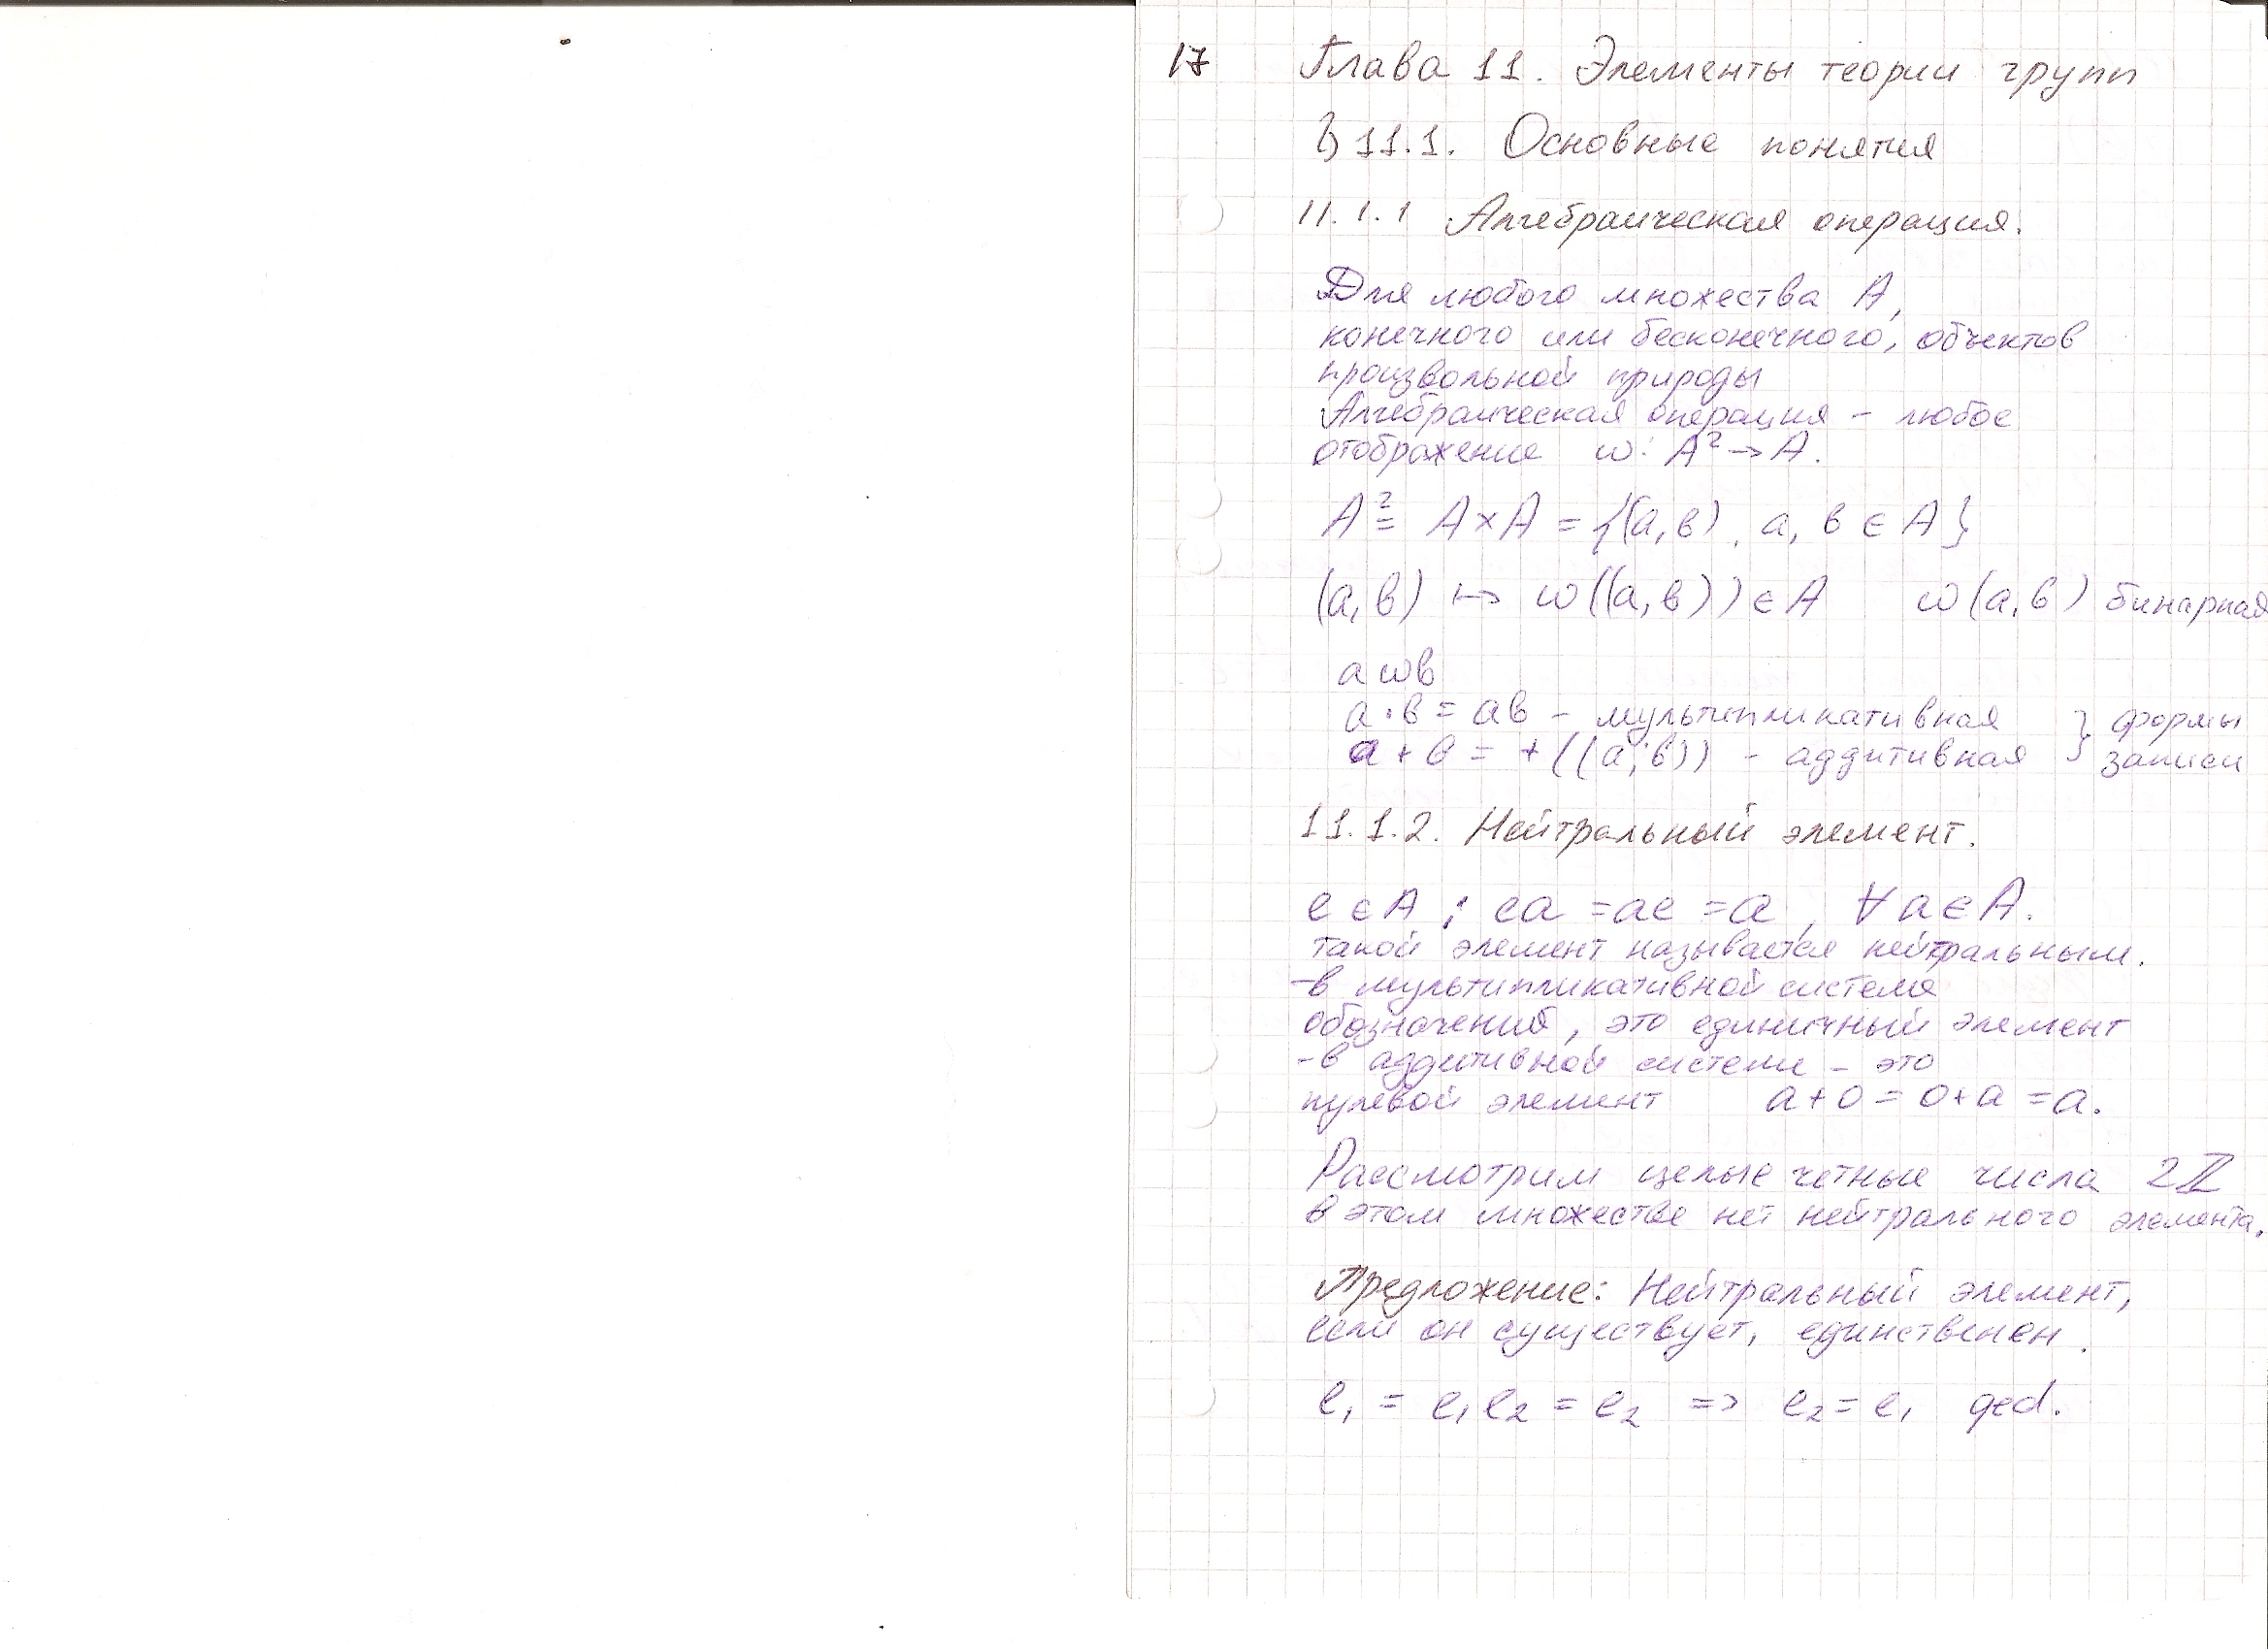 17 Глава 11. Элементы теории групп
§ 11.1. Основные понятия
11.1.1 Алгебраическая операция.
Для любого множества А,
конечного или бесконечного, объектов
произвольной природы
Алгебраическая операция – любое
отображение ω: A² → A.
A² = A×A = {(a,в), a, в ∈ A}
(a,в) ↦ ω((a,в)) ∈ A ω(a,в) бинарная
a ω в
a·в = aв – мультипликативная } формы
a + в = +((a,в)) – аддитивная } записи
11.1.2. Нейтральный элемент.
e ∈ A : ea = ae = a, ∀ a ∈ A.
такой элемент называется нейтральным.
-в мультипликативной системе
обозначений, это единичный элемент
-в аддитивной системе – это
нулевой элемент a+0 = 0+a = a.
Рассмотрим целые четные числа 2ℤ
в этом множестве нет нейтрального элемента.
Предложение: Нейтральный элемент,
если он существует, единственен.
e₁ = e₁e₂ = e₂ => e₂ = e₁ qed.